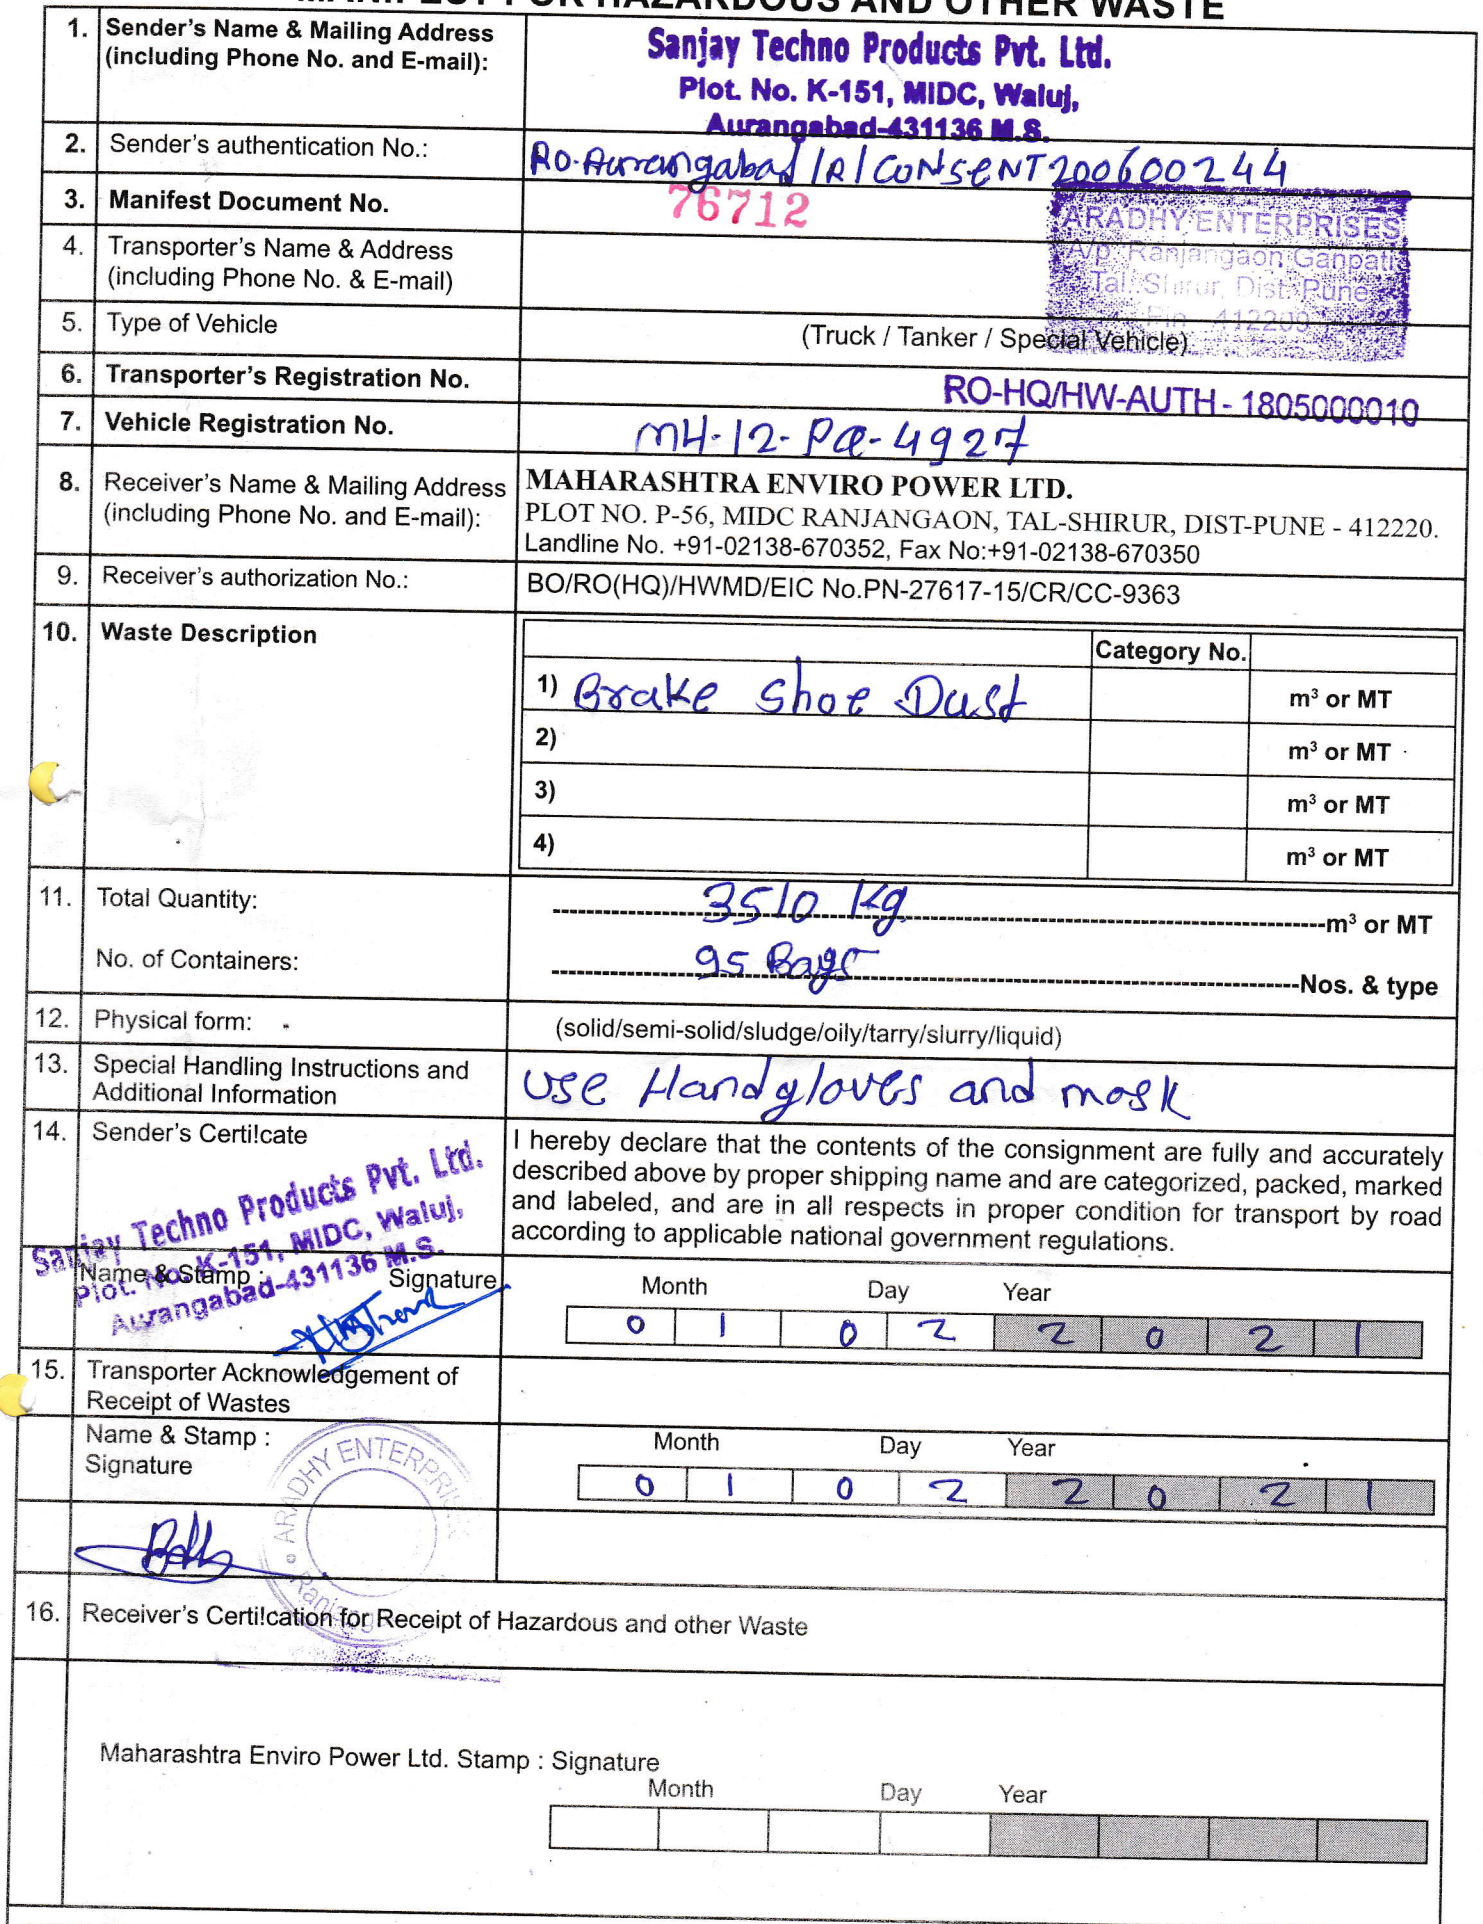 MANIFEST FOR HAZARDOUS AND OTHER WASTE
1. Sender's Name & Mailing Address
(including Phone No. and E-mail):
Sanjay Techno Products Pvt. Ltd.
Plot. No. K-151, MIDC, Waluj,
Aurangabad-431136 M.S.
2. Sender's authentication No.:
RO-Aurangabad/R/CONSENT200600244
3. Manifest Document No.
76712
4. Transporter's Name & Address
(including Phone No. & E-mail)
ARADHY ENTERPRISES
A/p. Ranjangaon Ganpati
Tal. Shirur, Dist. Pune
Pin - 412209
5. Type of Vehicle
(Truck / Tanker / Special Vehicle)
6. Transporter's Registration No.
RO-HQ/HW-AUTH - 1805000010
7. Vehicle Registration No.
MH-12-PQ-4927
8. Receiver's Name & Mailing Address
(including Phone No. and E-mail):
MAHARASHTRA ENVIRO POWER LTD.
PLOT NO. P-56, MIDC RANJANGAON, TAL-SHIRUR, DIST-PUNE - 412220.
Landline No. +91-02138-670352, Fax No:+91-02138-670350
9. Receiver's authorization No.:
BO/RO(HQ)/HWMD/EIC No.PN-27617-15/CR/CC-9363
10. Waste Description
Category No.
1) Brake Shoe Dust m³ or MT
2) m³ or MT
3) m³ or MT
4) m³ or MT
11. Total Quantity:
3510 Kg m³ or MT
No. of Containers:
95 Bags Nos. & type
12. Physical form:
(solid/semi-solid/sludge/oily/tarry/slurry/liquid)
13. Special Handling Instructions and
Additional Information
Use Handgloves and mask
14. Sender's Certi!cate
I hereby declare that the contents of the consignment are fully and accurately
described above by proper shipping name and are categorized, packed, marked
and labeled, and are in all respects in proper condition for transport by road
according to applicable national government regulations.
Sanjay Techno Products Pvt. Ltd.
Plot. No. K-151, MIDC, Waluj,
Aurangabad-431136 M.S.
Name & Stamp : Signature
Month Day Year
0 1 0 2 2 0 2 1
15. Transporter Acknowledgement of
Receipt of Wastes
Name & Stamp :
Signature
ARADHY ENTERPRIS
Month Day Year
0 1 0 2 2 0 2 1
16. Receiver's Certi!cation for Receipt of Hazardous and other Waste
Maharashtra Enviro Power Ltd. Stamp : Signature
Month Day Year